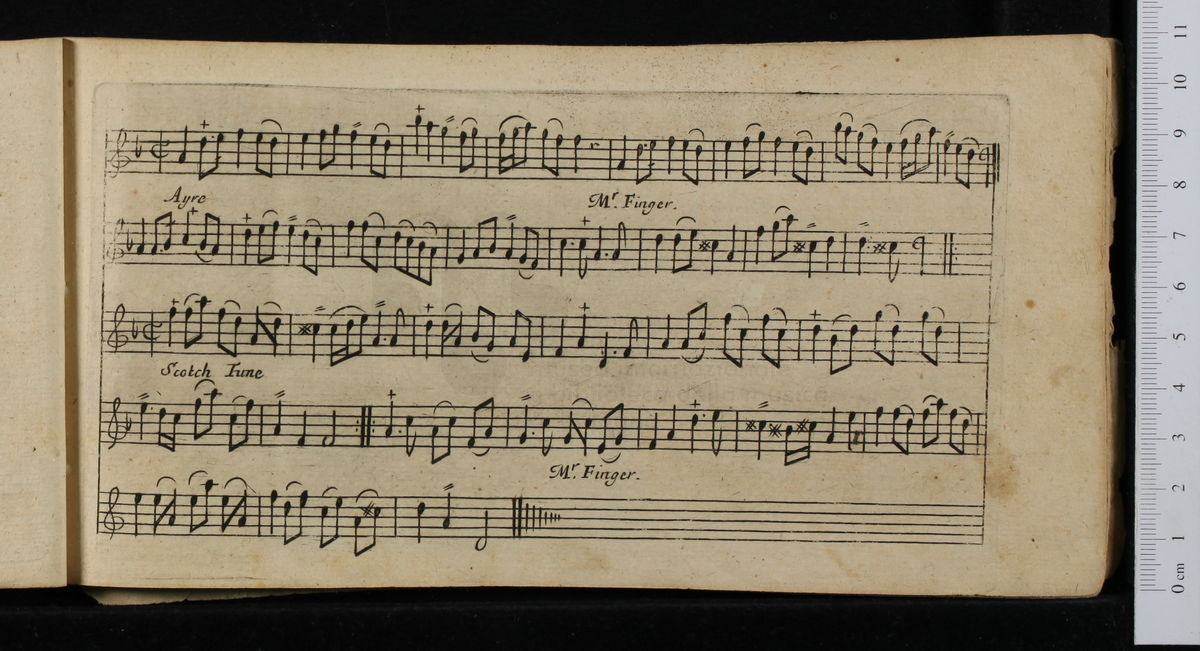 Ayre
Mr. Finger.
Scotch Tune
Mr. Finger.
11
10
9
8
7
6
5
4
3
2
1
0 cm